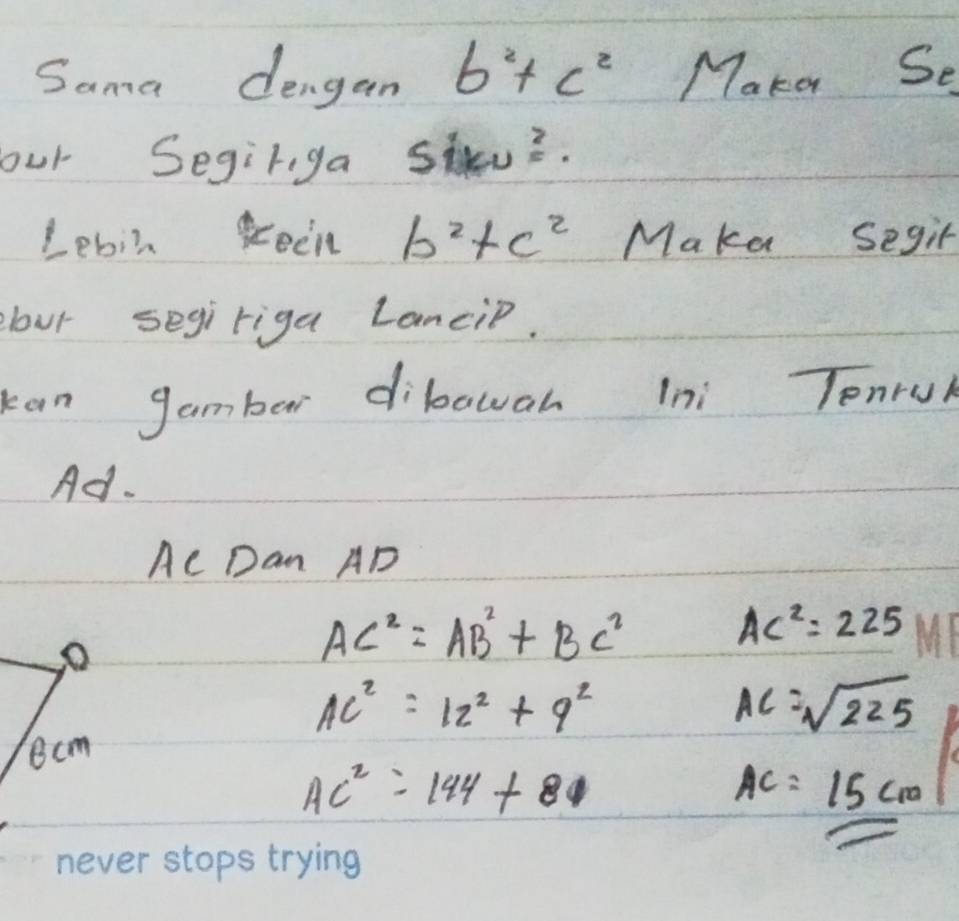 Sama dengan b²+ c² Maka Se
but Segitiga siku².
Lebih kecil b²+c² Maka segit
ebut segitiga Lancip.
kan gambar dibawah Ini Tentuk
Ad.
AC Dan AD
D
8cm
AC² = AB² + BC²
AC² = 12² + 9²
AC² = 144 + 81
AC² = 225
AC = √225
AC = 15 cm
never stops trying